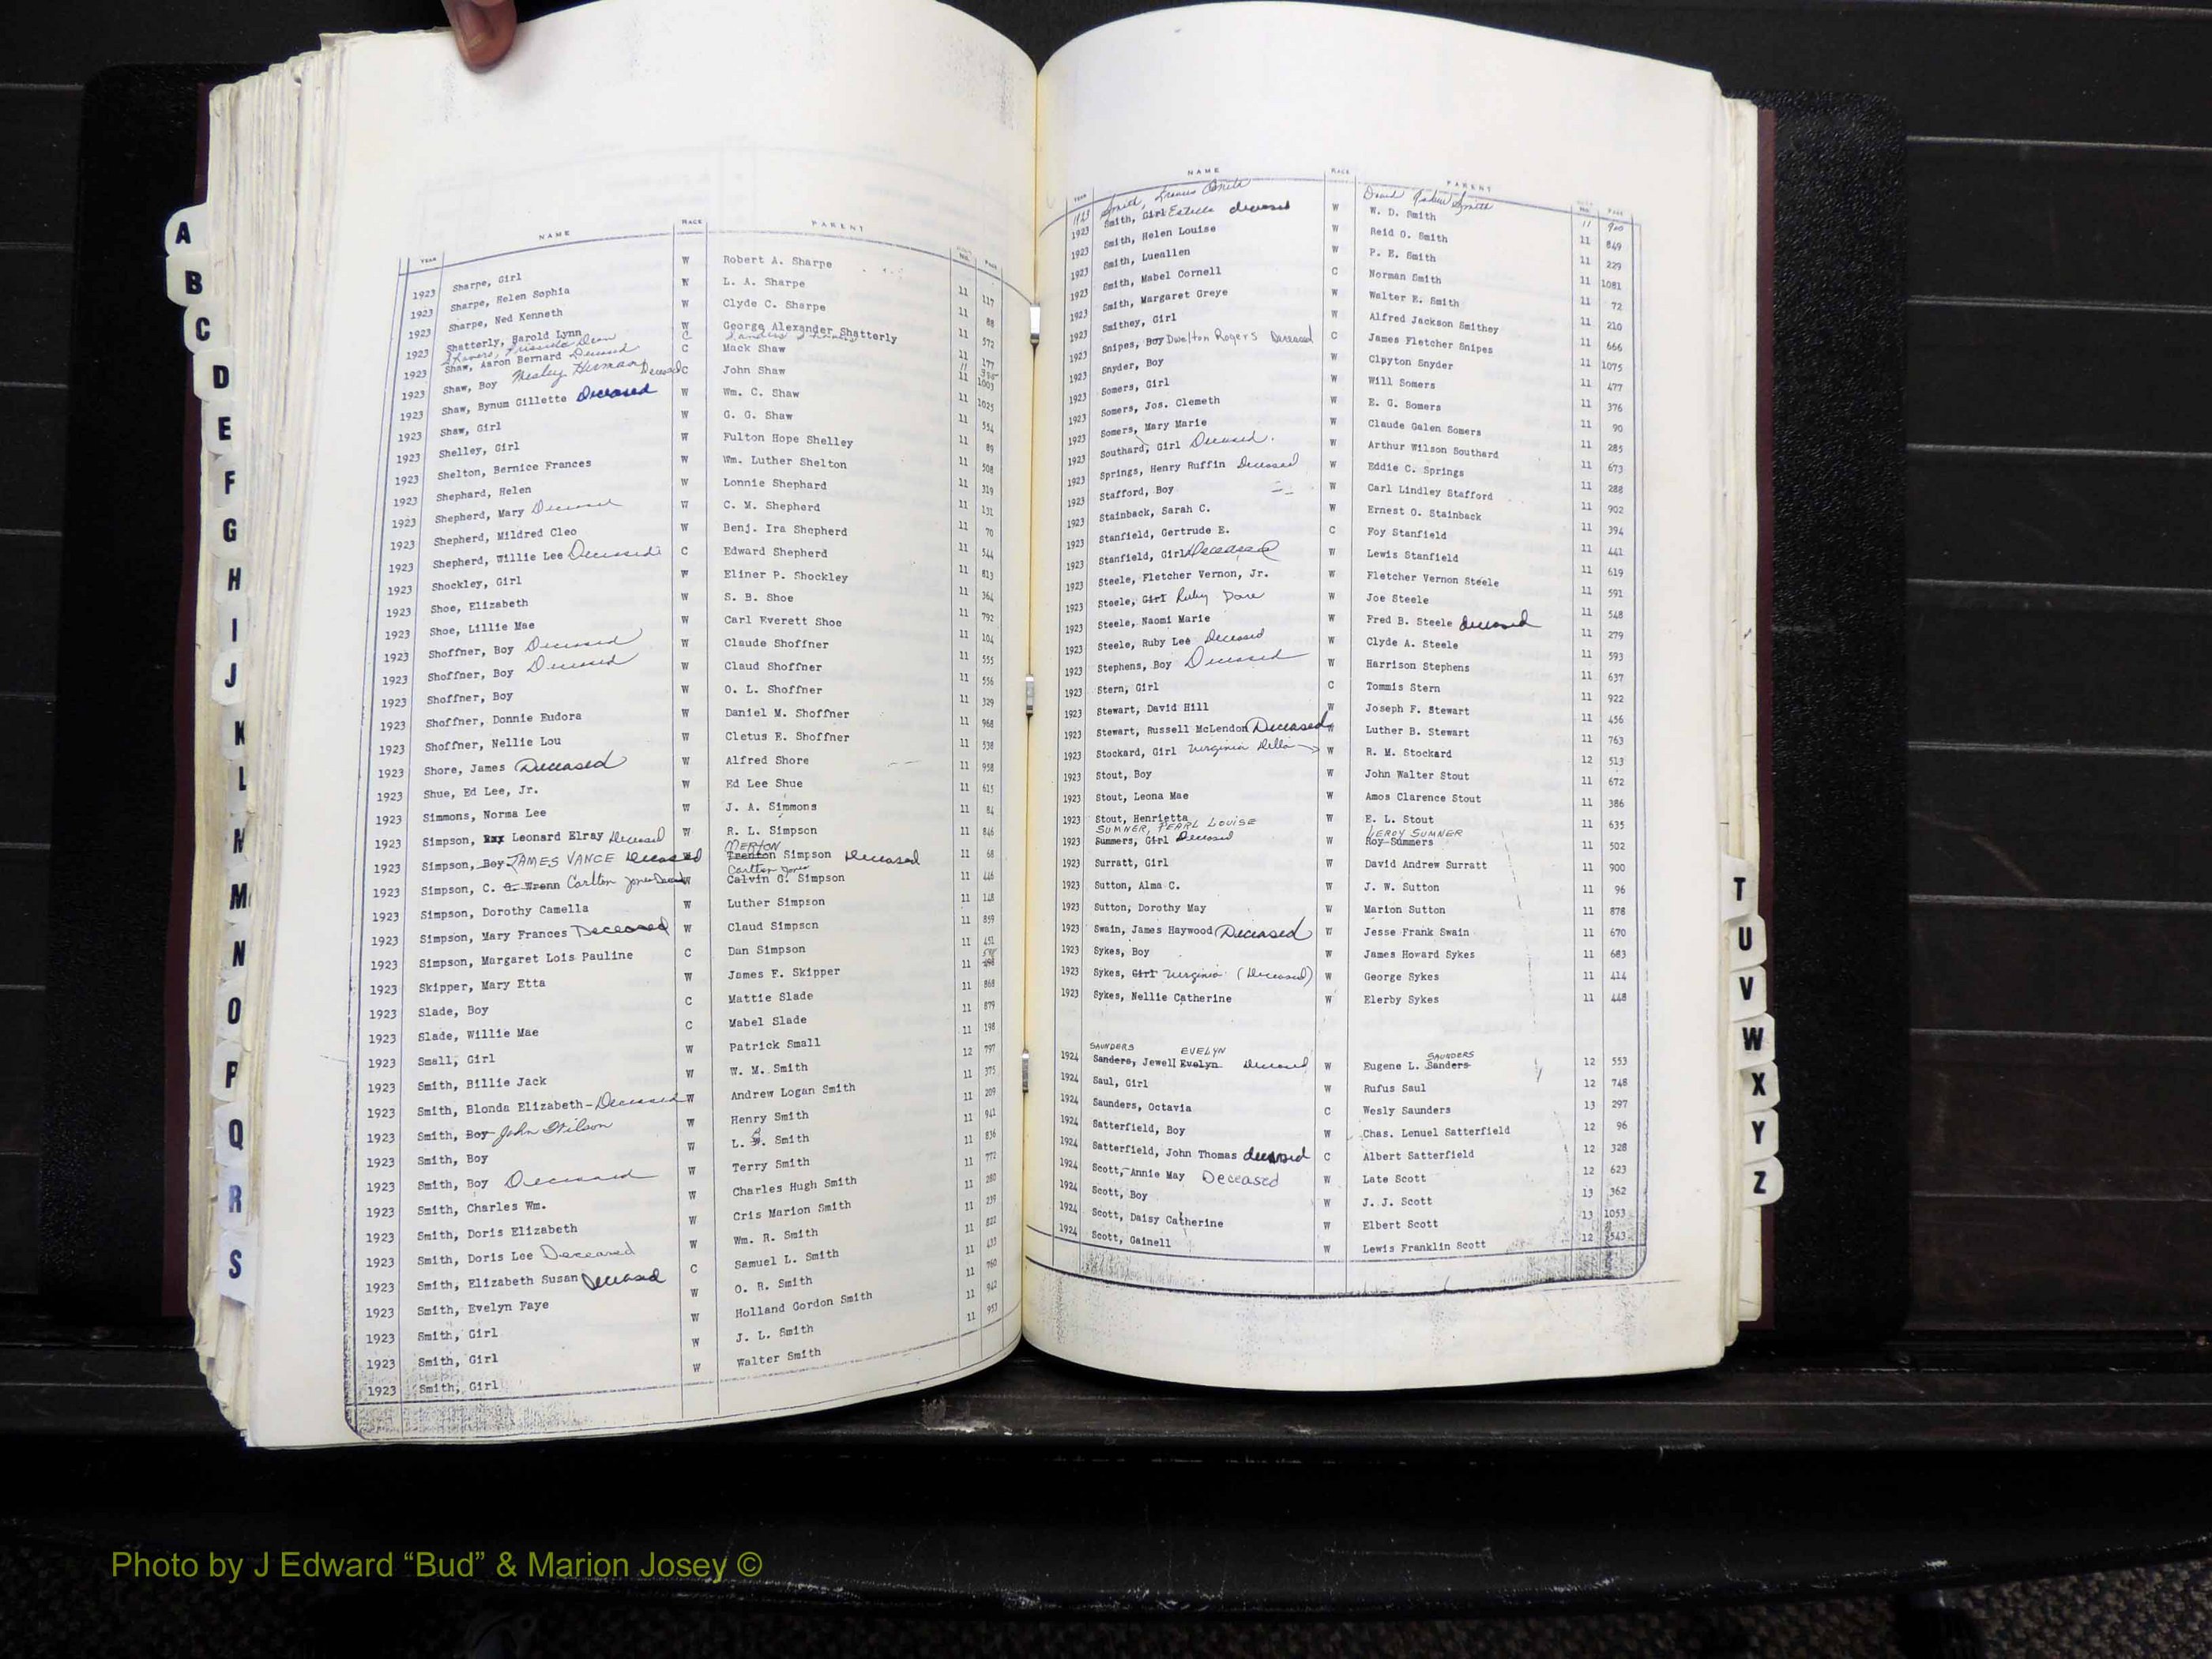 A
B
C
D
E
F
G
H
I
J
K
L
M
M
N
O
P
Q
R
S
YEAR NAME RACE PARENT PAGE
1923 Sharpe, Girl W Robert A. Sharpe 11 117
1923 Sharpe, Helen Sophia W L. A. Sharpe 11 88
1923 Sharpe, Ned Kenneth W Clyde C. Sharpe 11 572
1923 Shatterly, Harold Lynn W George Alexander Shatterly 11 177
Dean
1923 Shaw, Aaron Bernard Deceased C Mack Shaw 11 1003
1923 Shaw, Boy Wesley Herman Deceased C John Shaw 11 1025
1923 Shaw, Bynum Gillette Deceased W Wm. C. Shaw 11 554
1923 Shaw, Girl W G. G. Shaw 11 89
1923 Shelley, Girl W Fulton Hope Shelley 11 508
1923 Shelton, Bernice Frances W Wm. Luther Shelton 11 319
1923 Shephard, Helen W Lonnie Shephard 11 131
1923 Shepherd, Mary Deceased W C. M. Shepherd 11 70
1923 Shepherd, Mildred Cleo W Benj. Ira Shepherd 11 544
1923 Shepherd, Willie Lee Deceased C Edward Shepherd 11 813
1923 Shockley, Girl W Eliner P. Shockley 11 364
1923 Shoe, Elizabeth W S. B. Shoe 11 792
1923 Shoe, Lillie Mae W Carl Everett Shoe 11 104
1923 Shoffner, Boy Deceased W Claude Shoffner 11 555
1923 Shoffner, Boy Deceased W Claud Shoffner 11 556
1923 Shoffner, Boy W O. L. Shoffner 11 329
1923 Shoffner, Donnie Eudora W Daniel M. Shoffner 11 968
1923 Shoffner, Nellie Lou W Cletus E. Shoffner 11 538
1923 Shore, James Deceased W Alfred Shore 11 958
1923 Shue, Ed Lee, Jr. W Ed Lee Shue 11 615
1923 Simmons, Norma Lee W J. A. Simmons 11 84
1923 Simpson, Leonard Elray Deceased W R. L. Simpson 11 846
MERTON
1923 Simpson, Boy JAMES VANCE Deceased W Trenton Simpson Deceased 11 68
Carlton Jones
1923 Simpson, C. G. Wrenn Carlton Jones Deceased W Calvin G. Simpson 11 446
1923 Simpson, Dorothy Camella W Luther Simpson 11 148
1923 Simpson, Mary Frances Deceased W Claud Simpson 11 859
1923 Simpson, Margaret Lois Pauline C Dan Simpson 11 451
1923 Skipper, Mary Etta W James F. Skipper 11
1923 Slade, Boy C Mattie Slade 11 868
1923 Slade, Willie Mae C Mabel Slade 11 879
1923 Small, Girl W Patrick Small 11 198
1923 Smith, Billie Jack W W. M. Smith 12 797
1923 Smith, Blonda Elizabeth - Deceased W Andrew Logan Smith 11 375
1923 Smith, Boy John Wilson W Henry Smith 11 209
1923 Smith, Boy W L. Smith 11 941
1923 Smith, Boy Deceased W Terry Smith 11 836
1923 Smith, Charles Wm. W Charles Hugh Smith 11 772
1923 Smith, Doris Elizabeth W Cris Marion Smith 11 280
1923 Smith, Doris Lee Deceased W Wm. R. Smith 11 239
1923 Smith, Elizabeth Susan Deceased C Samuel L. Smith 11 822
1923 Smith, Evelyn Faye W O. R. Smith 11 433
1923 Smith, Girl W Holland Gordon Smith 11 760
1923 Smith, Girl W J. L. Smith 11 942
1923 Smith, Girl W Walter Smith 11 953
YEAR NAME RACE PARENT PAGE
1923 Smith, Smith David Smith 11 900
1923 Smith, Girl Estelle deceased W W. D. Smith 11 849
1923 Smith, Helen Louise W Reid O. Smith 11 229
1923 Smith, Lueallen W P. E. Smith 11 1081
1923 Smith, Mabel Cornell C Norman Smith 11 72
1923 Smith, Margaret Greye W Walter E. Smith 11 210
1923 Smithey, Girl W Alfred Jackson Smithey 11 666
1923 Snipes, Boy Dwalton Rogers Deceased C James Fletcher Snipes 11 1075
1923 Snyder, Boy W Clpyton Snyder 11 477
1923 Somers, Girl W Will Somers 11 376
1923 Somers, Jos. Clemeth W E. G. Somers 11 90
1923 Somers, Mary Marie W Claude Galen Somers 11 285
1923 Southard, Girl Deceased. W Arthur Wilson Southard 11 673
1923 Springs, Henry Ruffin Deceased W Eddie C. Springs 11 288
1923 Stafford, Boy W Carl Lindley Stafford 11 902
1923 Stainback, Sarah C. W Ernest O. Stainback 11 394
1923 Stanfield, Gertrude E. C Foy Stanfield 11 441
1923 Stanfield, Girl Deceased W Lewis Stanfield 11 619
1923 Steele, Fletcher Vernon, Jr. W Fletcher Vernon Steele 11 591
1923 Steele, Girl Ruby Dare W Joe Steele 11 548
1923 Steele, Naomi Marie W Fred B. Steele deceased 11 279
1923 Steele, Ruby Lee Deceased W Clyde A. Steele 11 593
1923 Stephens, Boy Deceased W Harrison Stephens 11 637
1923 Stern, Girl C Tommis Stern 11 922
1923 Stewart, David Hill W Joseph F. Stewart 11 456
1923 Stewart, Russell McLendon Deceased W Luther B. Stewart 11 763
1923 Stockard, Girl Virginia Della W R. M. Stockard 12 513
1923 Stout, Boy W John Walter Stout 11 672
1923 Stout, Leona Mae W Amos Clarence Stout 11 386
1923 Stout, Henrietta W E. L. Stout 11 635
SUMNER, PEARL LOUISE LEROY SUMNER
1923 Summers, Girl Deceased W Roy Summers 11 502
1923 Surratt, Girl W David Andrew Surratt 11 900
1923 Sutton, Alma C. W J. W. Sutton 11 96
1923 Sutton, Dorothy May W Marion Sutton 11 878
1923 Swain, James Haywood Deceased W Jesse Frank Swain 11 670
1923 Sykes, Boy W James Howard Sykes 11 683
1923 Sykes, Girl Virginia (Deceased) W George Sykes 11 414
1923 Sykes, Nellie Catherine W Elerby Sykes 11 448
SAUNDERS EVELYN SAUNDERS
1924 Sanders, Jewell Evelyn Deceased W Eugene L. Sanders 12 553
1924 Saul, Girl W Rufus Saul 12 748
1924 Saunders, Octavia C Wesly Saunders 13 297
1924 Satterfield, Boy W Chas. Lenuel Satterfield 12 96
1924 Satterfield, John Thomas deceased C Albert Satterfield 12 328
1924 Scott, Annie May Deceased W Late Scott 12 623
1924 Scott, Boy W J. J. Scott 13 362
1924 Scott, Daisy Catherine W Elbert Scott 13 1053
1924 Scott, Gainell W Lewis Franklin Scott 12 543
T
U
V
W
X
Y
Z
Photo by J Edward “Bud” & Marion Josey ©